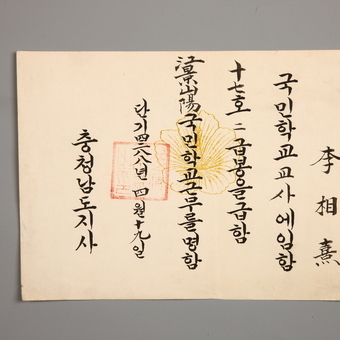 李相熹
국민학교교사에임함
十七호二급봉을급함
山陽국민학교근무를명함
단기四二八八년四월十九일
충청남도지사